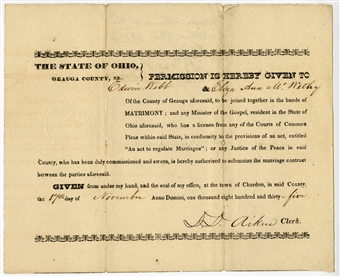 THE STATE OF OHIO,
GEAUGA COUNTY, SS.
PERMISSION IS HEREBY GIVEN TO
Edwin Webb & Eliza Ann
Of the County of Geauga aforesaid, to be joined together in the bands of
MATRIMONY; and any Minister of the Gospel, resident in the State of
Ohio aforesaid, who has a license from any of the Courts of Common
Pleas within said State, in conformity to the provisions of an act, entitled
"An act to regulate Marriages"; or any Justice of the Peace in said
County, who has been duly commissioned and sworn, is hereby authorized to solemnize the marriage contract
between the parties aforesaid.
GIVEN from under my hand, and the seal of my office, at the town of Chardon, in said county,
the 17th day of November Anno Domini, one thousand eight hundred and thirty-five
D. D. Aiken Clerk.